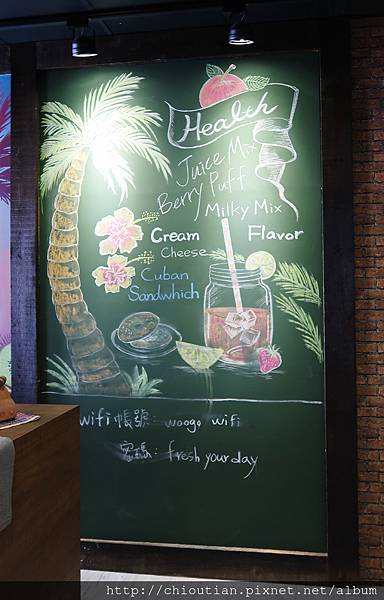 Health
Juice Mix
Berry Puff
Milky Mix
Cream Flavor
Cheese
Cuban
Sandwhich
wifi 帳號: woogo wifi
密碼: fresh your day
http://chioutian.pixnet.net/album